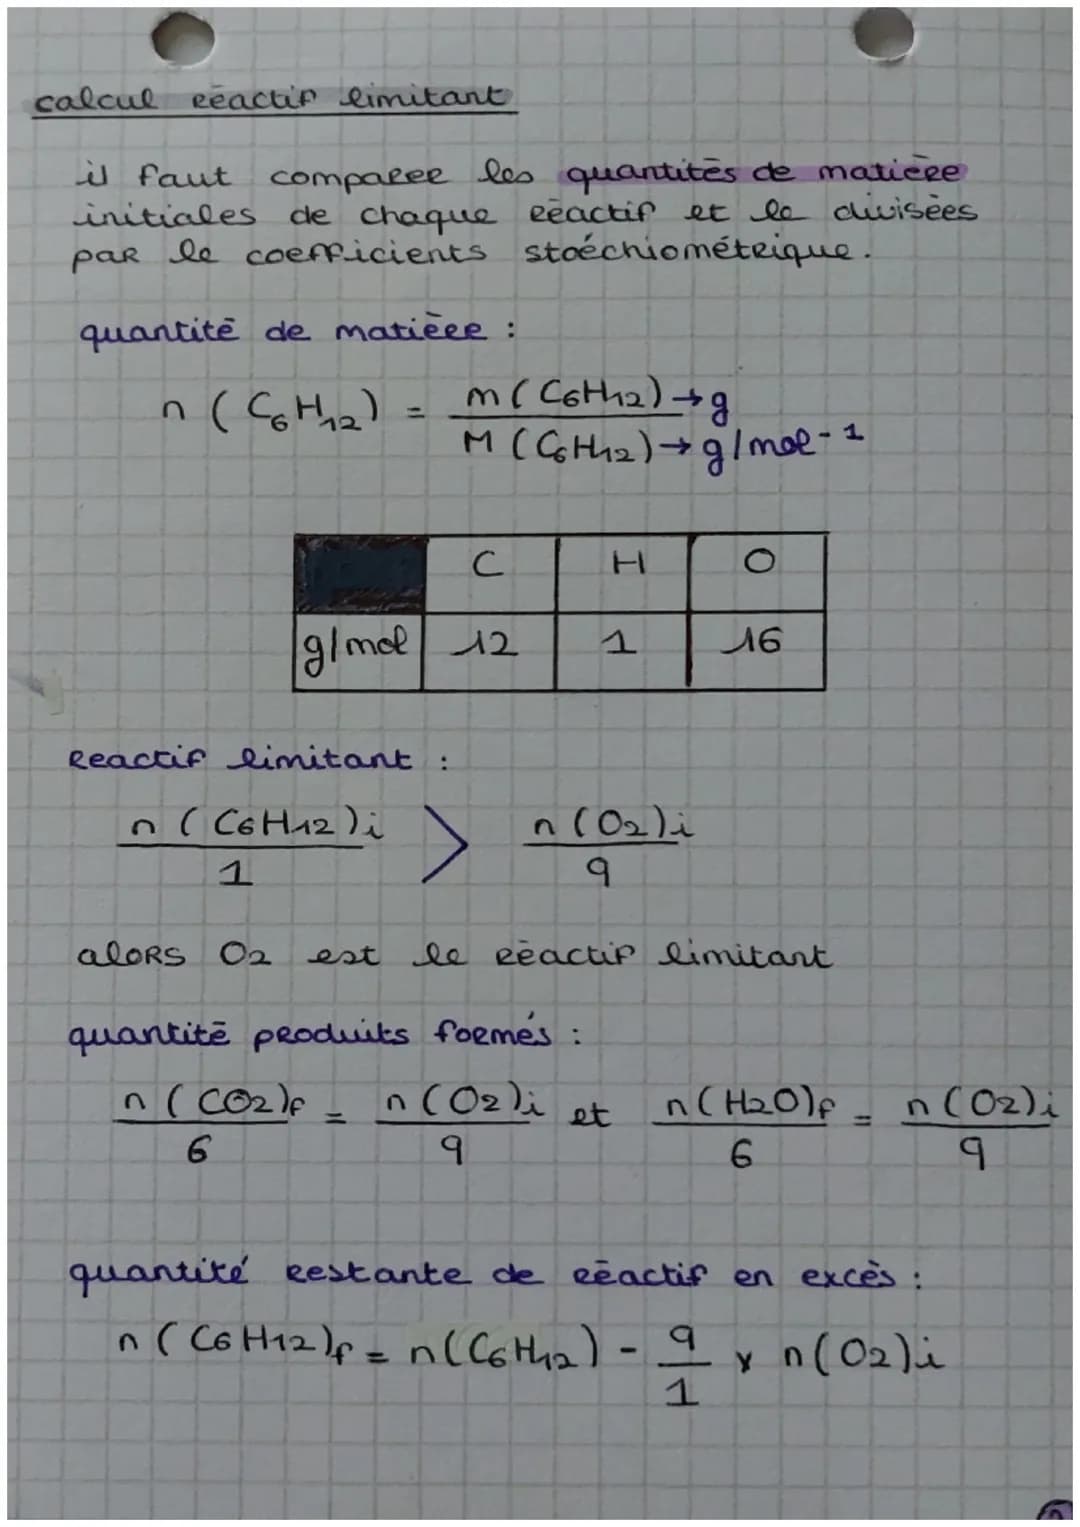 calcul réactif limitant
il faut comparer les quantités de matière
initiales de chaque réactif et le divisées
par le coefficients stoéchiométrique.
quantité de matière :
n (C6H12) = m (C6H12) → g / M (C6H12) → g/mol-1
C H O
g/mol 12 1 16
Reactif limitant :
n (C6H12)i / 1 > n (O2)i / 9
alors O2 est le réactif limitant
quantité produits formés :
n (CO2)f / 6 = n (O2)i / 9 et n (H2O)f / 6 = n (O2)i / 9
quantité restante de réactif en excès :
n (C6H12)f = n(C6H12) - 9/1 x n(O2)i